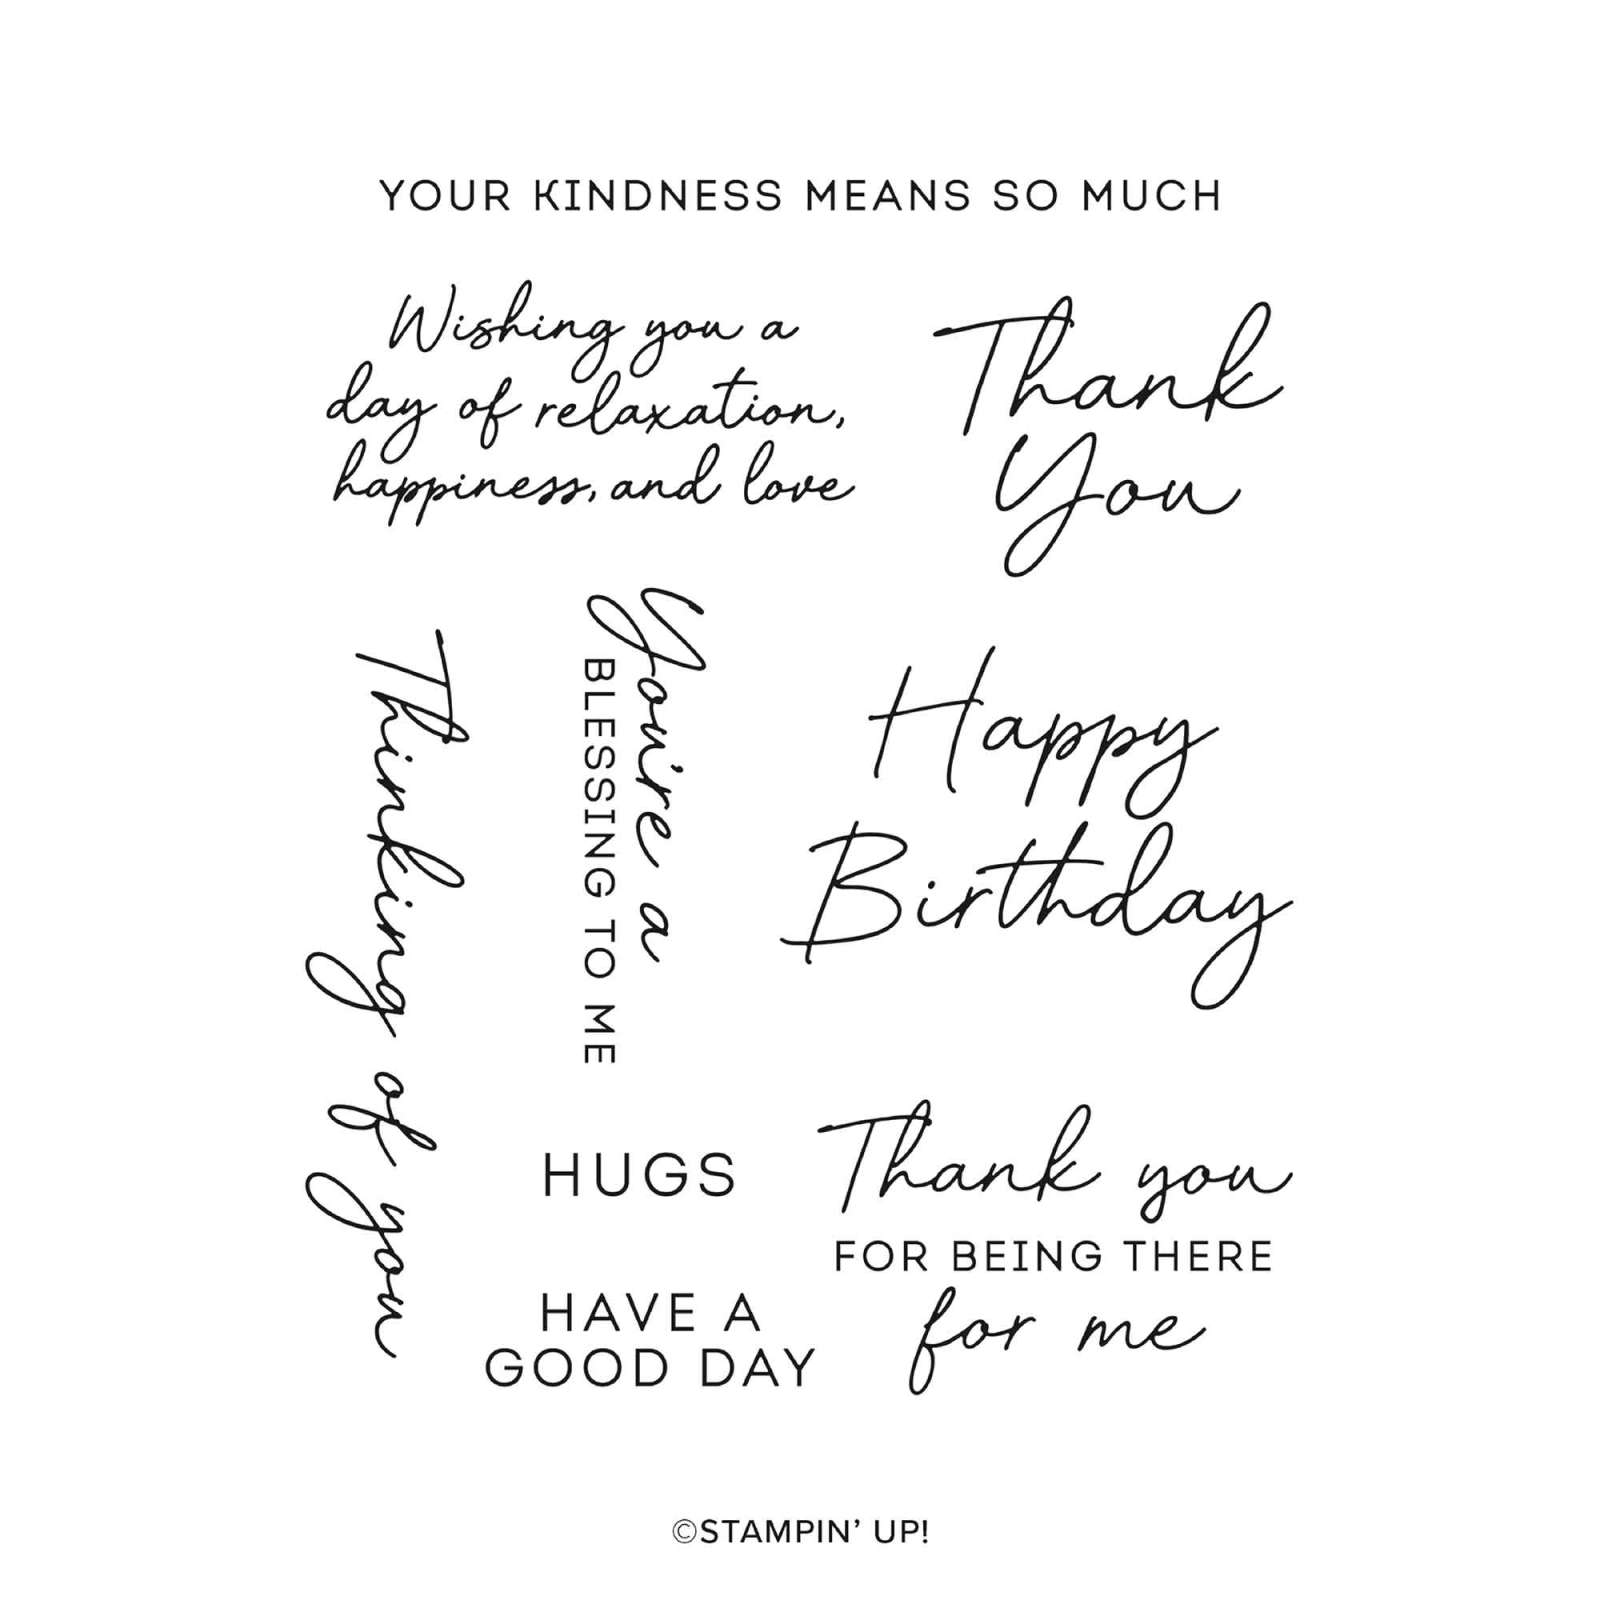 YOUR KINDNESS MEANS SO MUCH
Wishing you a
day of relaxation,
happiness, and love
Thank
You
Thinking of you
You're a
BLESSING TO ME
Happy
Birthday
HUGS
HAVE A
GOOD DAY
Thank you
FOR BEING THERE
for me
©STAMPIN' UP!